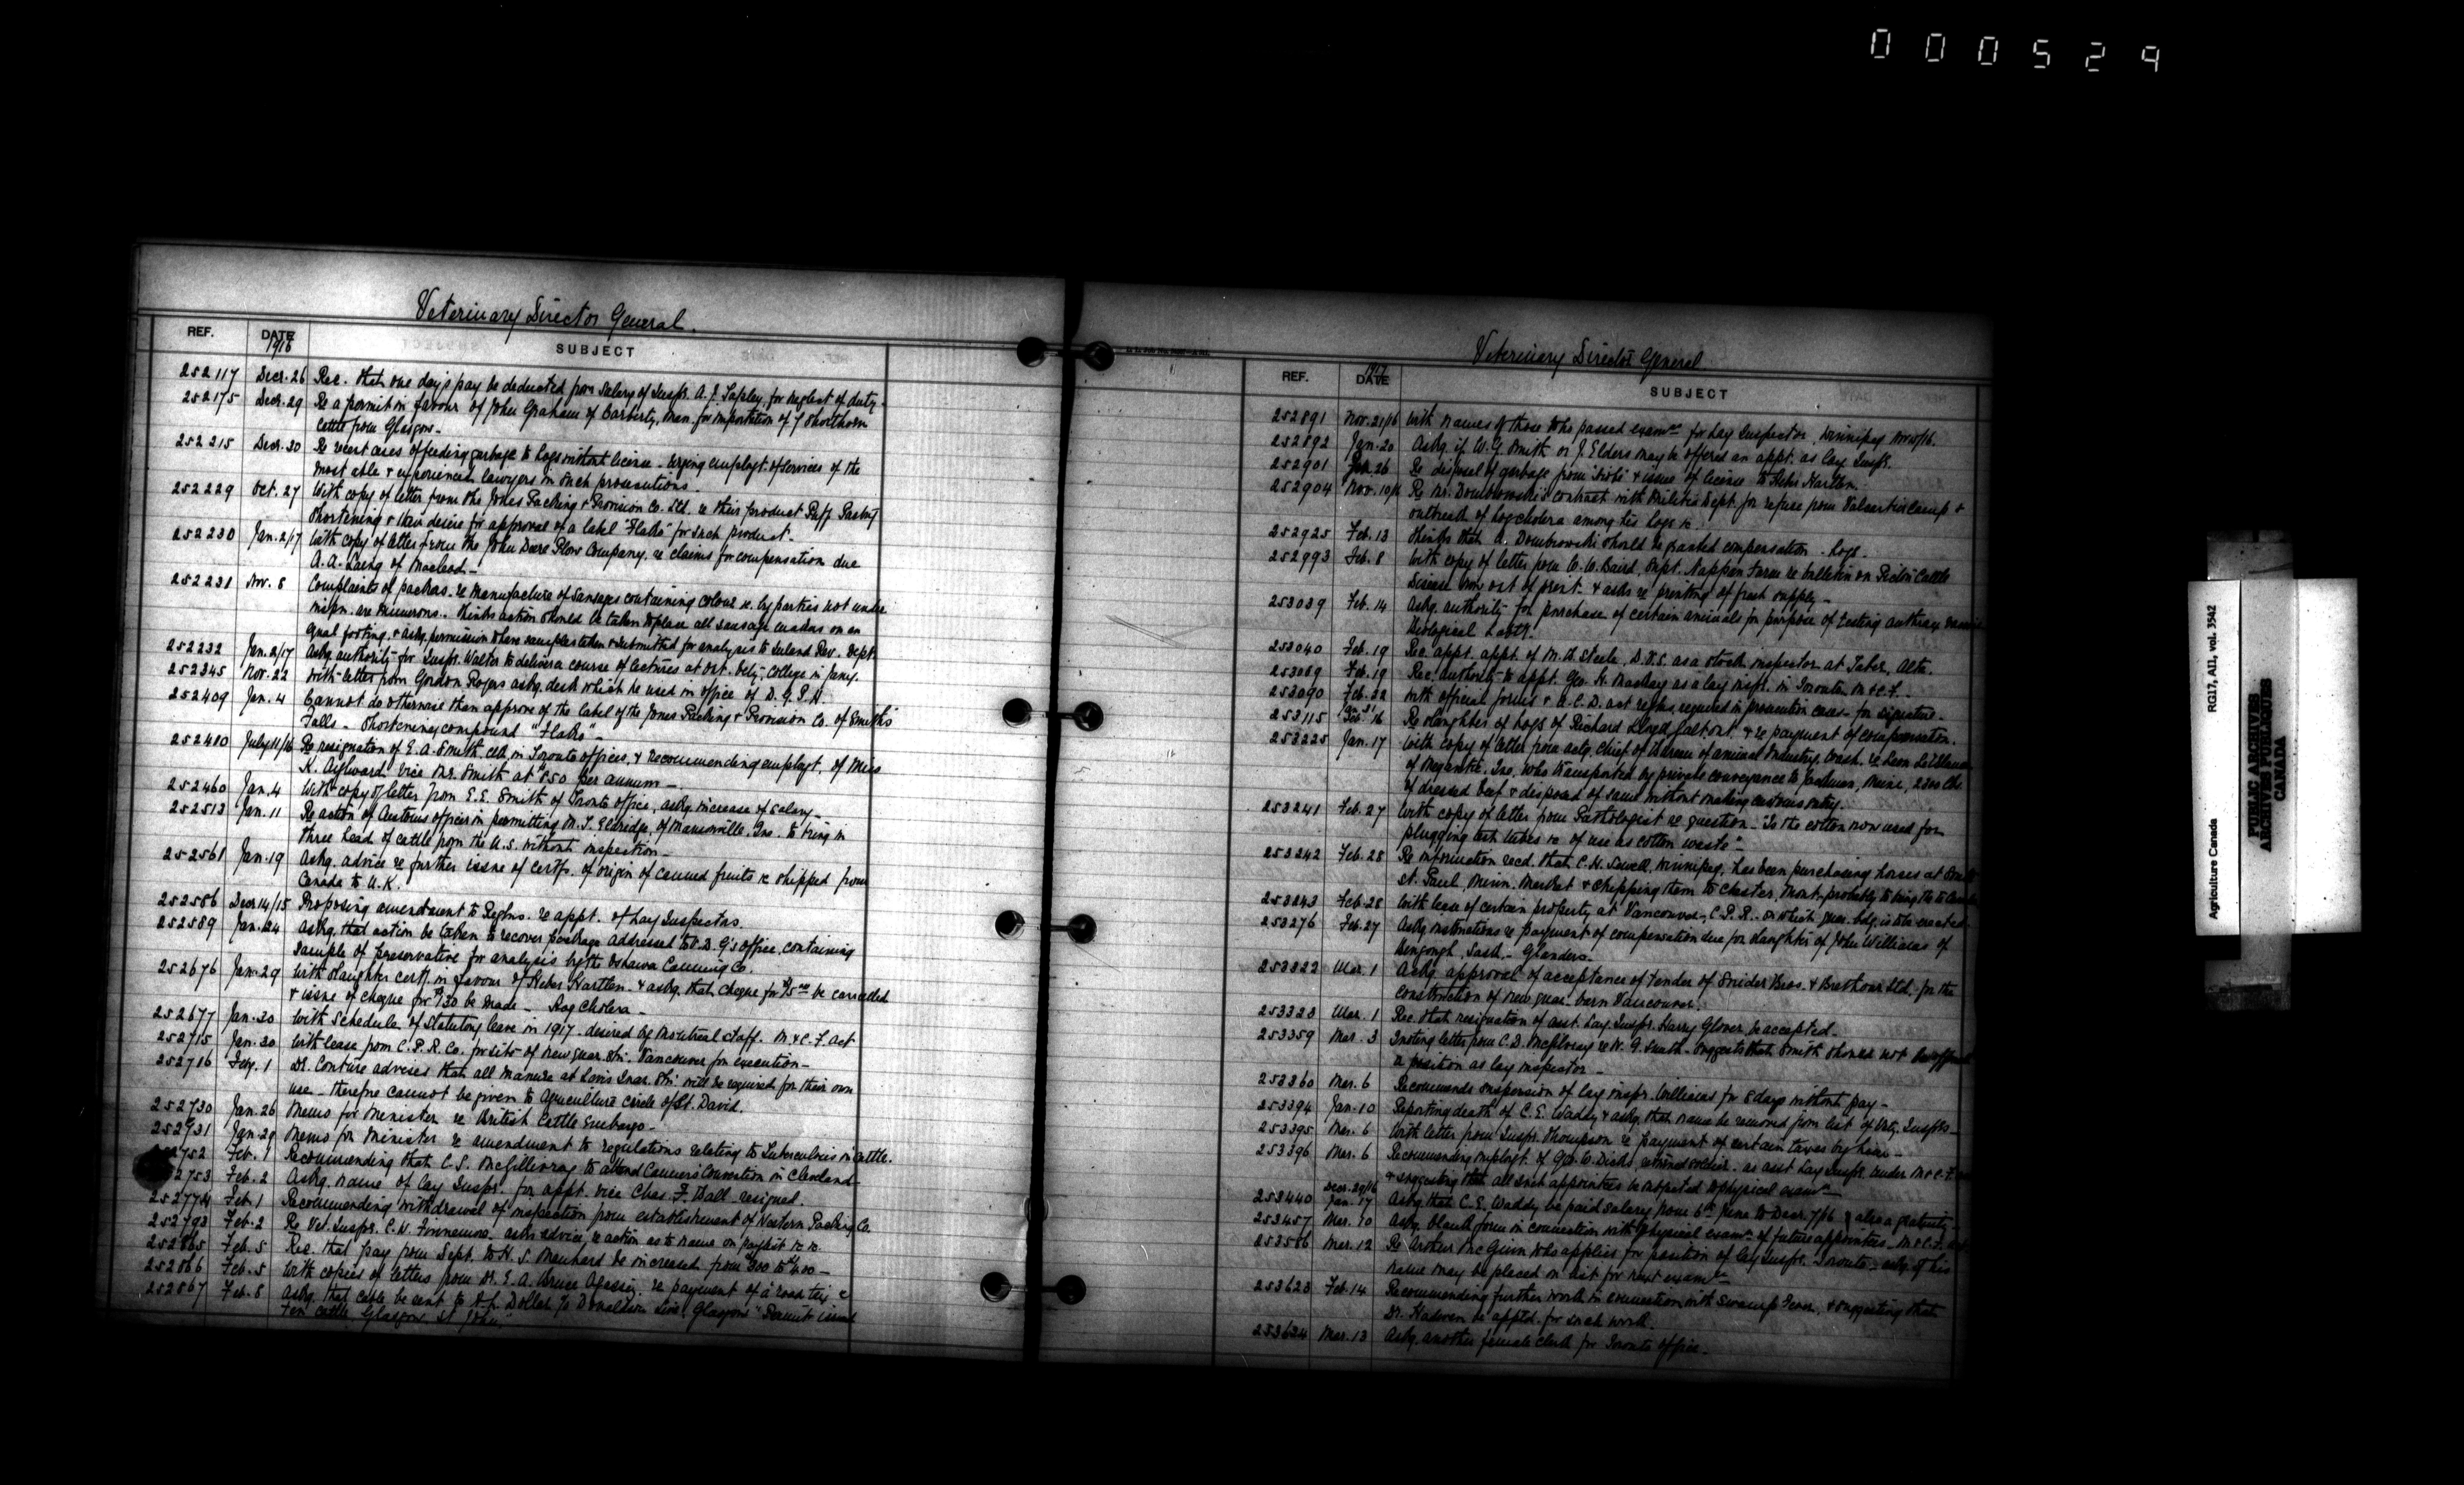 000529
Veterinary Director General.
REF. DATE SUBJECT
1916
252117 Decr. 26 Rec. that one day's pay be deducted from salary of Inspr. A. J. Tapley, for neglect of duty.
252175 Decr. 29 Re a permit in favour of John Graham of Carberry, Man. for importation of 7 Shorthorn
cattle from Glasgow.
252215 Decr. 30 Re recent cases of feeding garbage to hogs without license - urging employt. of services of the
most able & experienced lawyers in such prosecutions.
252229 Oct. 27 With copy of letter from the Jones Packing & Provision Co. Ltd. re their product Puff Pastry
Shortening & their desire for approval of a label "Flako" for such product.
252230 Jan. 2/17 With copy of letter from the John Deere Plow Company, re claims for compensation due
A. A. Laing of Macleod -
252231 Nov. 8 Complaints of packers re manufacture of sausages containing colour &c. by parties not under
inspn. are numerous. Thinks action should be taken to place all sausage makers on an
equal footing, & askg. permission to have samples taken & submitted for analysis to Inland Rev. Dept.
252232 Jan. 2/17 Askg authority for Inspr. Walter to deliver a course of lectures at Ont. Vety. College in Jany.
252345 Nov. 22 With letter from Gordon Rogers askg. desk which he used in office of D. G. P. H.
252409 Jan. 4 Cannot do otherwise than approve of the label of the Jones Packing & Provision Co. of Smith's
Falls - Shortening compound "Flako" -
252410 July 11/16 Re resignation of E. A. Smith clk. in Toronto offices, & recommending employt. of Miss
K. Aylward vice Mr. Smith at $850 per annum -
252460 Jan. 4 With copy of letter from E. E. Smith of Toronto office, askg. increase of salary -
252513 Jan. 11 Re action of Customs officer in permitting M. T. Eldredge, of Mansonville, Que. to bring in
three head of cattle from the U.S. without inspection -
252561 Jan. 19 Askg. advice re further issue of certfs. of origin of canned fruits &c shipped from
Canada to U.K.
252586 Decr 14/15 Proposing amendment to Reglns. re appt. of Lay Inspectors.
252589 Jan. 24 Askg. that action be taken to recover package addressed to V. D. G's office, containing
sample of preservative for analysis by the Oshawa Canning Co.
252676 Jan. 29 With slaughter certf. in favour of Heber Hartlen & askg. that cheque for $15.00 be cancelled
& issue of cheque for $30 be made - Hog Cholera -
252677 Jan. 30 With schedule of statutory leave in 1917 desired by Montreal staff. M. & C. F. Act
252715 Jan. 30 With lease from C. P. R. Co. for site of new quar. Stn. Vancouver for execution -
252716 Feby. 1 Dr. Couture advises that all manure at Levis Quar. Stn. will be required for their own
use - therefore cannot be given to agriculture circle of St. David.
252730 Jan. 26 Memo for Minister re British Cattle Embargo -
252731 Jan. 29 Memo for Minister re amendment to regulations relating to Tuberculosis in Cattle.
2752 Feb. 1 Recommending that C. S. McGillivray to attend Canners Convention in Cleveland
2753 Feb. 2 Askg. name of lay Inspr. for appt. vice Chas. F. Ball resigned.
252774 Feb. 1 Recommending withdrawal of inspection from establishment of Western Packing Co.
252793 Feb. 2 Re Vet. Inspr. C. W. Finnemore asks advice re action as to name on paylist &c &c.
252865 Feb. 5 Rec. that pay from Sept. to H. S. Manhard be increased from $300 to $400 -
252866 Feb. 5 With copies of letters from Dr. E. A. Bruce Agassiz, re payment of a road trip &
252867 Feb. 8 Askg. that cable be sent to A. L. Dollar c/o Donaldson Line, Glasgow "Permit issued
Ten cattle Glasgow St John."
Veterinary Director General
REF. DATE SUBJECT
1917
252891 Nov. 21/16 With names of those who passed examn. for Lay Inspector, Winnipeg Nov. 15/16.
252892 Jan. 20 Askg. if W. G. Smith or J. Elders may be offered an appt. as Lay Inspr.
252901 Jan. 26 Re disposal of garbage from "Niobe" & issue of licence to Heber Hartlen.
252904 Nov. 10/16 Re Mr. Dombrowski's contract with Militia Dept. for refuse from Valcartier Camp &
outbreak of hog cholera among his hogs &c.
252925 Feb. 13 Thinks that A. Dombrowski should be granted compensation - hogs.
252993 Feb. 8 With copy of letter from W. W. Baird, Supt. Nappan Farm re bulletin on Pictou Cattle
Disease now out of print & asks re printing of fresh supply -
253039 Feb. 14 Askg. authority for purchase of certain animals for purpose of testing anthrax vaccine
Biological Labty.
253040 Feb. 19 Rec. appt. appt. of M. W. Steele, D.V.S. as a stock inspector at Taber, Alta.
253089 Feb. 19 Rec. authority to appt. Geo. H. Mackay as a lay inspr. in Toronto. M. & C. F. -
253090 Feb. 22 With official forms & A. C. D. act reglns. required in prosecution cases - for signature -
253115 Jan. 31 Feb. 16 Re slaughter of hogs of Richard Lloyd Galt, Ont. & re payment of compensation.
253225 Jan. 17 With copy of letter from actg. Chief of Bureau of Animal Industry, Wash. re Leon LeBlanc
of Megantic, Que. who transported by private conveyance to Eustis, Maine, 2300 lbs.
of dressed beef & disposed of same without making customs entry.
253241 Feb. 27 With copy of letter from Pathologist re question - "Is the cotton now used for
plugging test tubes &c of use as cotton waste" -
253242 Feb. 28 Re information recd. that C. H. Sewell, Winnipeg, has been purchasing horses at South
St. Paul, Minn. Market & shipping them to Chester, Mont. probably to bring thro to Canada
253243 Feb. 28 With lease of certain property at Vancouver, C. P. R. - on which quar. bdg. is to be erected.
253276 Feb. 27 Askg. instructions re payment of compensation due for slaughter of John Williams of
Bengough, Sask. - Glanders -
253322 Mar. 1 Askg. approval of acceptance of tender of Snider Bros. & Brethour Ltd. for the
construction of new quar. barn Vancouver.
253323 Mar. 1 Rec. that resignation of asst. Lay Inspr. Harry Glover, be accepted -
253359 Mar. 3 Quoting letter from C. D. McGilvray re W. G. Smith - suggests that Smith should not be offered
a position as lay inspector -
253360 Mar. 6 Recommends suspension of lay inspr. Williams for 8 days without pay -
253394 Jan. 10 Reporting death of C. E. Waddy & askg. that name be removed from list of Vety. Insprs -
253395 Mar. 6 With letter from Inspr. Thompson re payment of certain taxes by him -
253396 Mar. 6 Recommending employt. of Geo. W. Dicks returned soldier - as asst Lay Inspr. under M. & C. F.
& suggesting that all such appointees be subjected to physical examn. -
Decr. 29/16
253440 Jan. 17 Askg. that C. E. Waddy be paid salary from 6th June to Decr. 7/16 also a gratuity -
253457 Mar. 10 Askg. blank form in connection with physical examn. of future appointees - M. & C. F. Act
253586 Mar. 12 Re Arthur McGuinn who applies for position of Lay Inspr. Toronto, askg. if his
name may be placed on list for next examn.
253623 Feb. 14 Recommending further work in connection with Swamp Fever, & suggesting that
Dr. Hadwen be apptd. for such work.
253634 Mar. 13 Askg. another female clerk for Toronto office -
Agriculture Canada RG17, AII, vol. 3542
PUBLIC ARCHIVES
ARCHIVES PUBLIQUES
CANADA